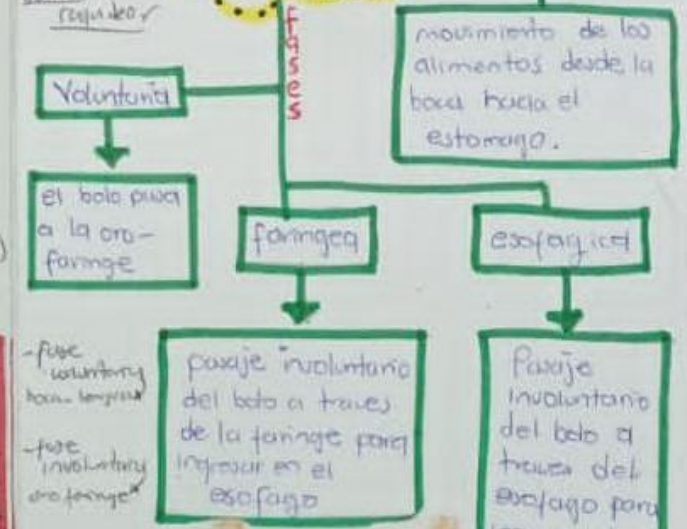 fases
movimiento de los
alimentos desde la
boca hacia el
estomago.
Voluntaria
el bolo pasa
a la oro-
faringe
faringea
esofagica
-fase
voluntary
-fase
involuntary
orofaringe
pasaje involuntario
del bolo a traves
de la faringe para
ingresar en el
esofago
Pasaje
involuntario
del bolo a
traves del
esofago para